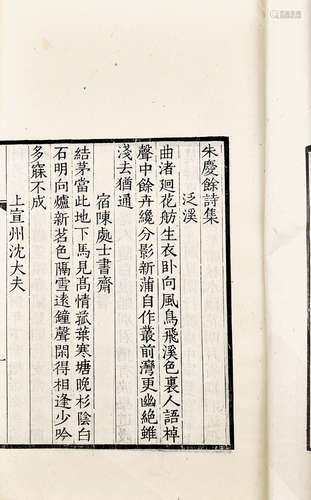 朱慶餘詩集
泛溪
曲渚廻花舫生衣臥向風鳥飛溪色裏人語棹
聲中餘卉纔分影新蒲自作叢前灣更幽絶雖
淺去猶通
宿陳處士書齋
結茅當此地下馬見髙情菰葉寒塘晚杉陰白
石明向爐新茗色隔雪遠鐘聲閒得相逢少吟
多寐不成
上宣州沈大夫
一